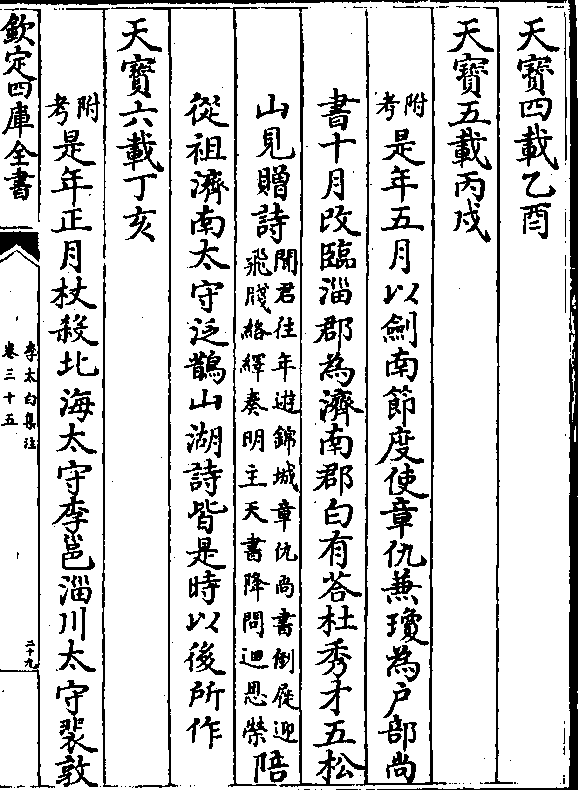 天寶四載乙酉
天寶五載丙戌
附考是年五月以劍南節度使章仇兼瓊為戶部尚
書十月改臨淄郡為濟南郡白有荅杜秀才五松
山見贈詩聞君往年遊錦城章仇尚書倒屣迎飛牋絡繹奏明主天書降問迴恩榮陪
從祖濟南太守泛鵲山湖詩皆是時以後所作
天寶六載丁亥
附考是年正月杖殺北海太守李邕淄川太守裴敦
欽定四庫全書
李太白集注
卷三十五
二十九